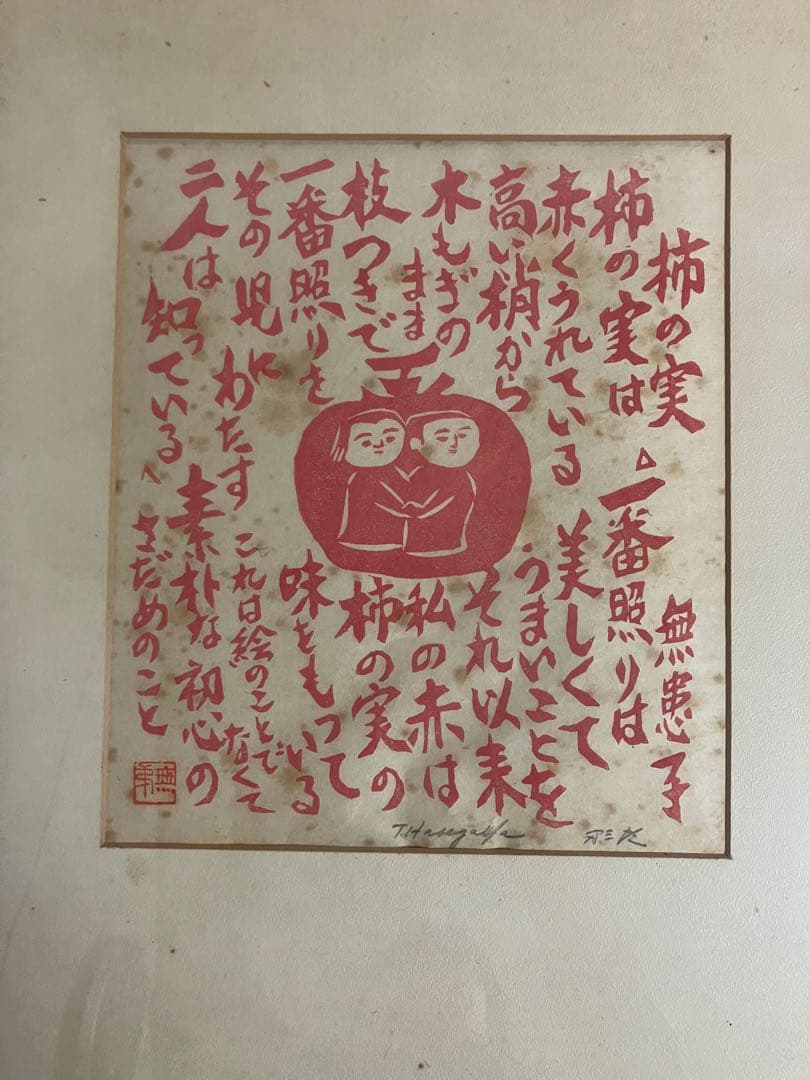 柿の実
無患子
柿の実は
赤くうれている
高い梢から
木もぎの
まま
枝つきで
一番照りを
その児にわたす
二人は
知っている
△一番照りは
美しくて
うまいことを
それ以来
私の赤は
柿の実の
味をもって
いる
これは絵のことで
なくて
素朴な初心の
さだめのこと
T.Hasegawa